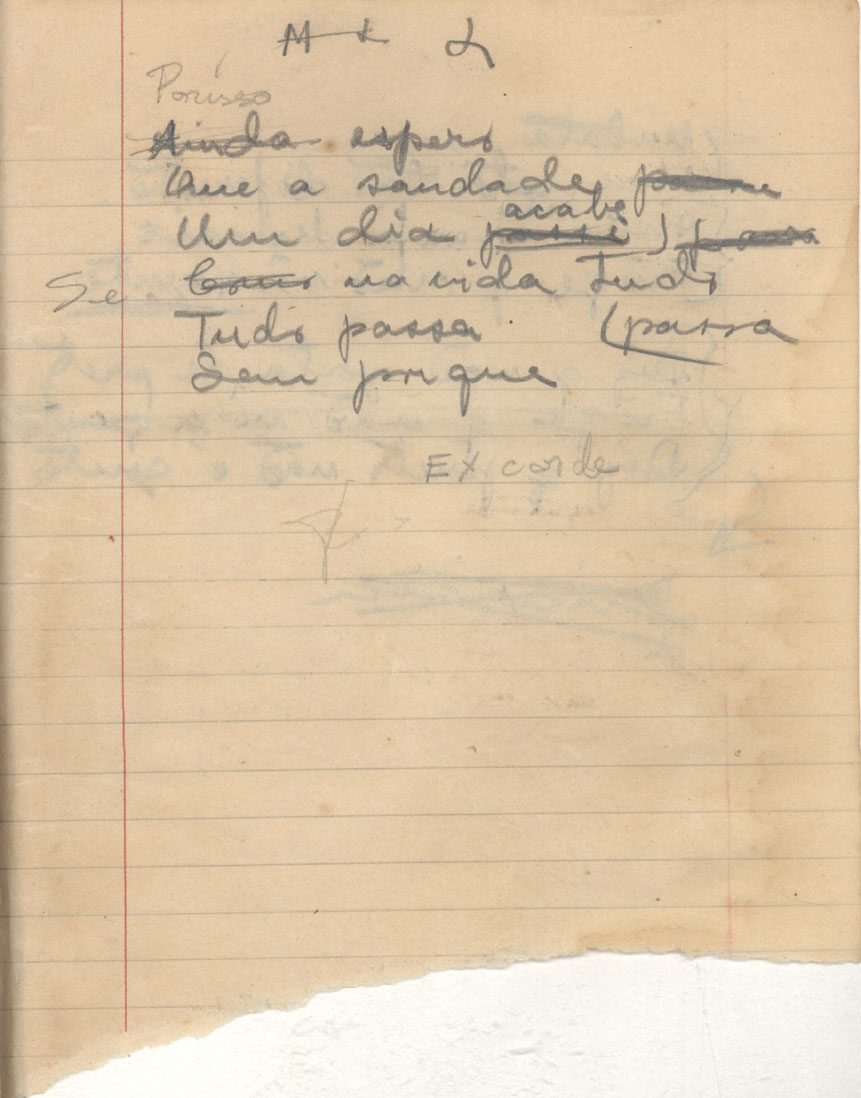 Porisso
Ainda espero
Que a saudade passe
Um dia passe acabe )
Se Como na vida Tudo
Tudo passa (passa
Sem porque
Ex corde